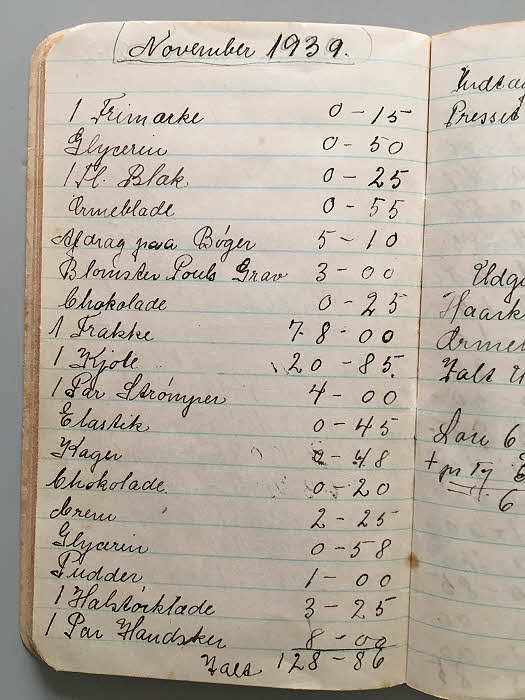 November 1939.
1 Frimærke 0-15
Glycerin 0-50
1 Fl. Blæk 0-25
Ærmeblade 0-55
Afdrag paa Bøger 5-10
Blomster Pouls Grav 3-00
Chokolade 0-25
1 Frakke 78-00
1 Kjole 20-85.
1 Par Strømper 4-00
Elastik 0-45
Kager 0-48
Chokolade 0-20
Crem 2-25
Glycerin 0-58
Pudder 1-00
1 Halstørklæde 3-25
1 Par Handsker 8-00
Ialt 128-86
Presset
Udg
Haark
Ærme
Ialt U
Løn 6
+ pr
6